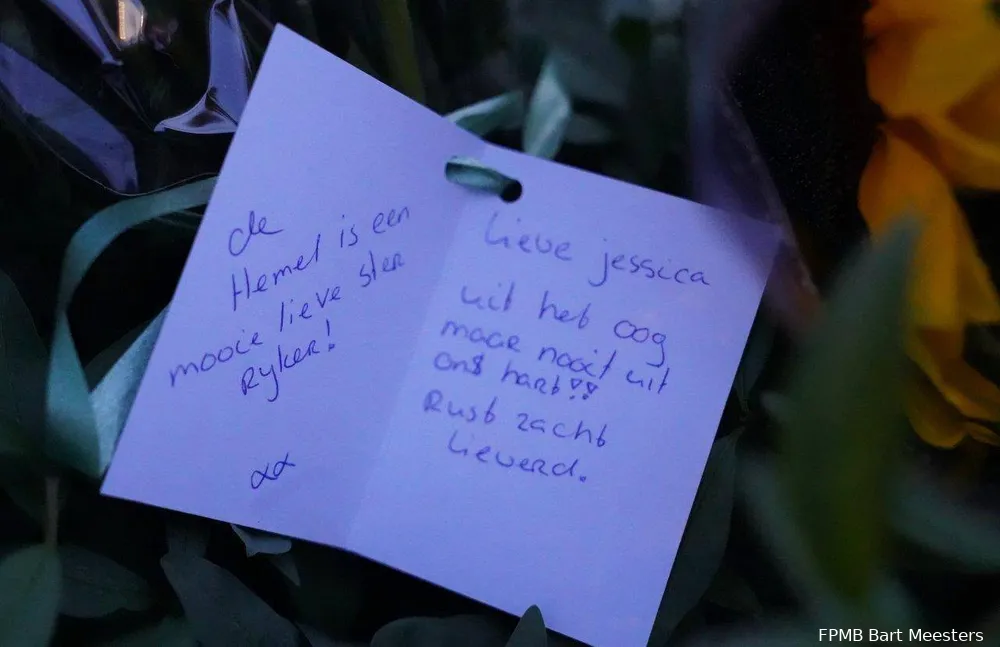 de
Hemel is een
mooie lieve ster
Ryker!
xx
Lieve jessica
uit het oog
maar nooit uit
ons hart!!
Rust zacht
Lieverd.
FPMB Bart Meesters